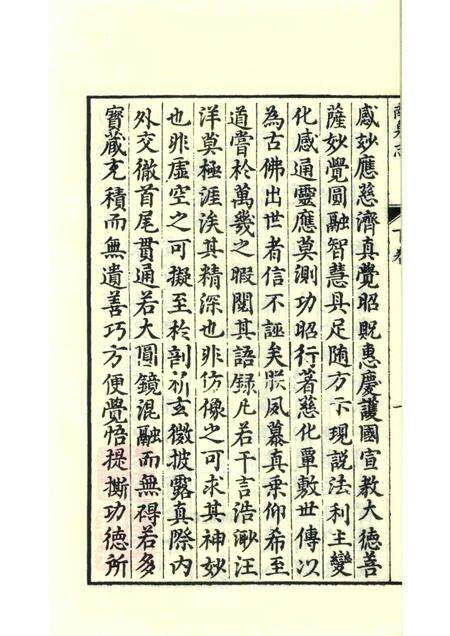 感妙應慈濟真覺昭貺惠慶護國宣教大德菩
薩妙覺圓融智慧具足随方示現説法利主變
化感通靈應莫測功昭行著慈化覃敷世傳以
為古佛出世者信不誣矣朕夙慕真乗仰希至
道嘗於萬幾之暇閲其語録凡若干言浩渺汪
洋莫極涯涘其精深也非仿像之可求其神妙
也非虚空之可擬至於剖析玄微披露真際内
外交徹首尾貫通若大圓鏡混融而無碍若多
寳蔵充積而無遺善巧方便覺悟提撕功德所